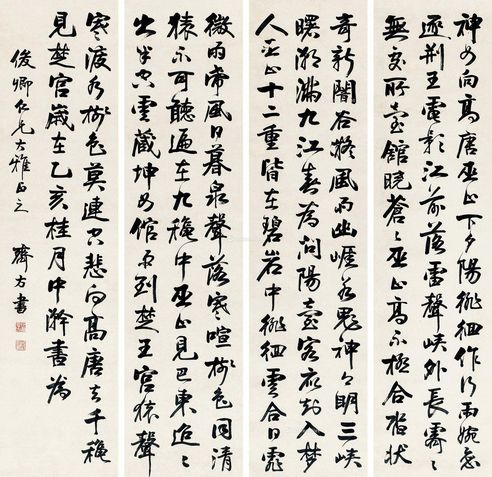 神女向高唐巫山下夕陽徘徊作行雨婉戀
逐荊王電影江前落雷聲峽外長霽霽
無處所臺館曉蒼蒼巫山高不極合沓狀
奇新闇谷疑風雨幽崖若鬼神月明三峽
曙潮滿九江春為問陽臺客應知入夢
人巫山十二重皆在碧岩中徘徊雲合日霏
微雨帶風日暮泉聲落寒喧樹色同清
猿不可聽遍在九穐中巫山見巴東迢迢
出半空雲藏神女館雨到楚王宮猿聲
寒渡水樹色莫連空悲向高唐去千穐
見楚宮歲在乙亥桂月中澣書為
俊卿仁兄大雅正之 方書